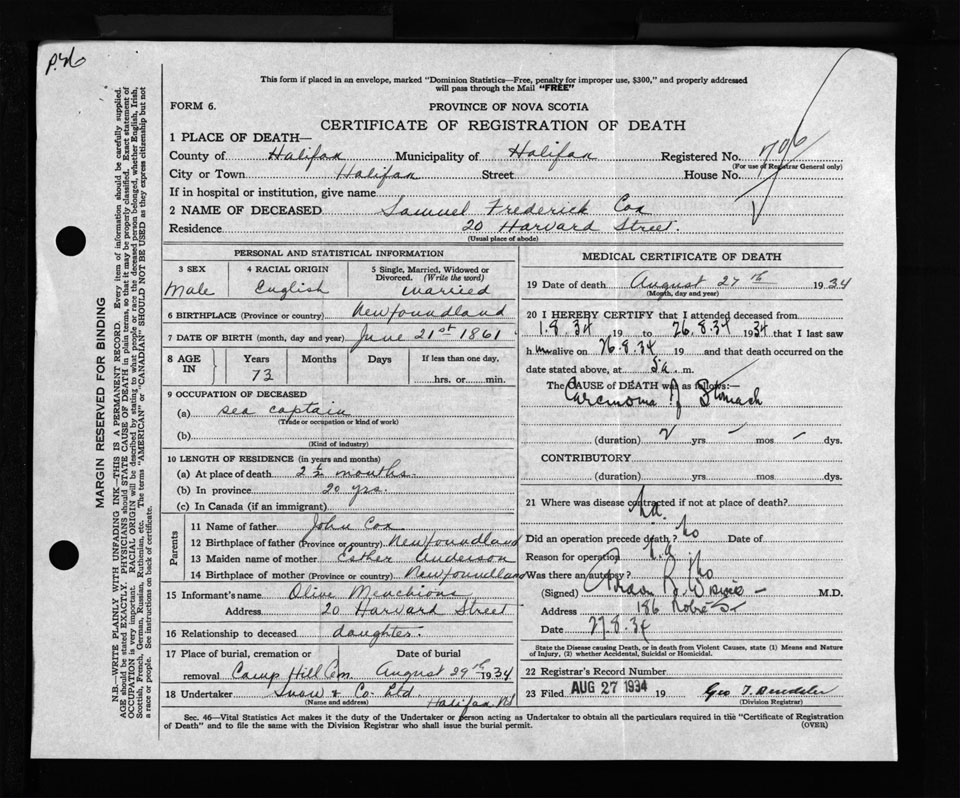 P.26
This form if placed in an envelope, marked "Dominion Statistics—Free, penalty for improper use, $300," and properly addressed
will pass through the Mail "FREE"
FORM 6.
PROVINCE OF NOVA SCOTIA
CERTIFICATE OF REGISTRATION OF DEATH
1 PLACE OF DEATH—
County of Halifax Municipality of Halifax Registered No. 706
(For use of Registrar General only)
City or Town Halifax Street House No.
If in hospital or institution, give name
2 NAME OF DECEASED Samuel Frederick Cox
Residence 20 Harvard Street.
(Usual place of abode)
PERSONAL AND STATISTICAL INFORMATION
3 SEX
Male
4 RACIAL ORIGIN
English
5 Single, Married, Widowed or
Divorced. (Write the word)
married
6 BIRTHPLACE (Province or country) Newfoundland
7 DATE OF BIRTH (month, day and year) June 21st 1861
8 AGE
IN
Years
73
Months
Days
If less than one day,
hrs. or min.
9 OCCUPATION OF DECEASED
(a) sea captain
(Trade or occupation or kind of work)
(b)
(Kind of industry)
10 LENGTH OF RESIDENCE (in years and months)
(a) At place of death 2 1/2 months.
(b) In province 20 yrs.
(c) In Canada (if an immigrant)
Parents
11 Name of father John Cox
12 Birthplace of father (Province or country) Newfoundland
13 Maiden name of mother Esther Anderson
14 Birthplace of mother (Province or country) Newfoundland
15 Informant's name Olive Menchions
Address 20 Harvard Street
16 Relationship to deceased daughter.
17 Place of burial, cremation or Date of burial
removal Camp Hill Cem. August 29th 1934
18 Undertaker Snow & Co. Ltd.
(Name and address) Halifax NS
MEDICAL CERTIFICATE OF DEATH
19 Date of death August 27th 1934
(Month, day and year)
20 I HEREBY CERTIFY that I attended deceased from
1.8.34 19 to 26.8.34 1934 that I last saw
him alive on 26.8.34 19 and that death occurred on the
date stated above, at 5 a. m.
The CAUSE of DEATH was as follows:—
Carcinoma of Stomach
(duration) 2 yrs. – mos – dys.
CONTRIBUTORY
(duration) yrs. mos. dys.
21 Where was disease contracted if not at place of death?
Did an operation precede death? no Date of
Reason for operation n.a.
Was there an autopsy? No
(Signed) M.D.
Address 186
Date 27.8.34
State the Disease causing Death, or in death from Violent Causes, state (1) Means and Nature
of Injury, (2) whether Accidental, Suicidal or Homicidal.
22 Registrar's Record Number
23 Filed AUG 27 1934 19
(Division Registrar)
Sec. 46—Vital Statistics Act makes it the duty of the Undertaker or person acting as Undertaker to obtain all the particulars required in the "Certificate of Registration
of Death" and to file the same with the Division Registrar who shall issue the burial permit. (OVER)
MARGIN RESERVED FOR BINDING
N.B.—WRITE PLAINLY WITH UNFADING INK—THIS IS A PERMANENT RECORD. Every item of information should be carefully supplied.
AGE should be stated EXACTLY. PHYSICIANS should STATE CAUSE OF DEATH in plain terms, so that it may be properly classified. Exact statement of
OCCUPATION is very important. RACIAL ORIGIN will be described by stating to what people or race the deceased person belonged, whether English, Irish,
Scottish, French, German, Russian, Ruthenian, etc. The terms "AMERICAN" or "CANADIAN" SHOULD NOT BE USED as they express citizenship but not
a race or people. See instructions on back of certificate.